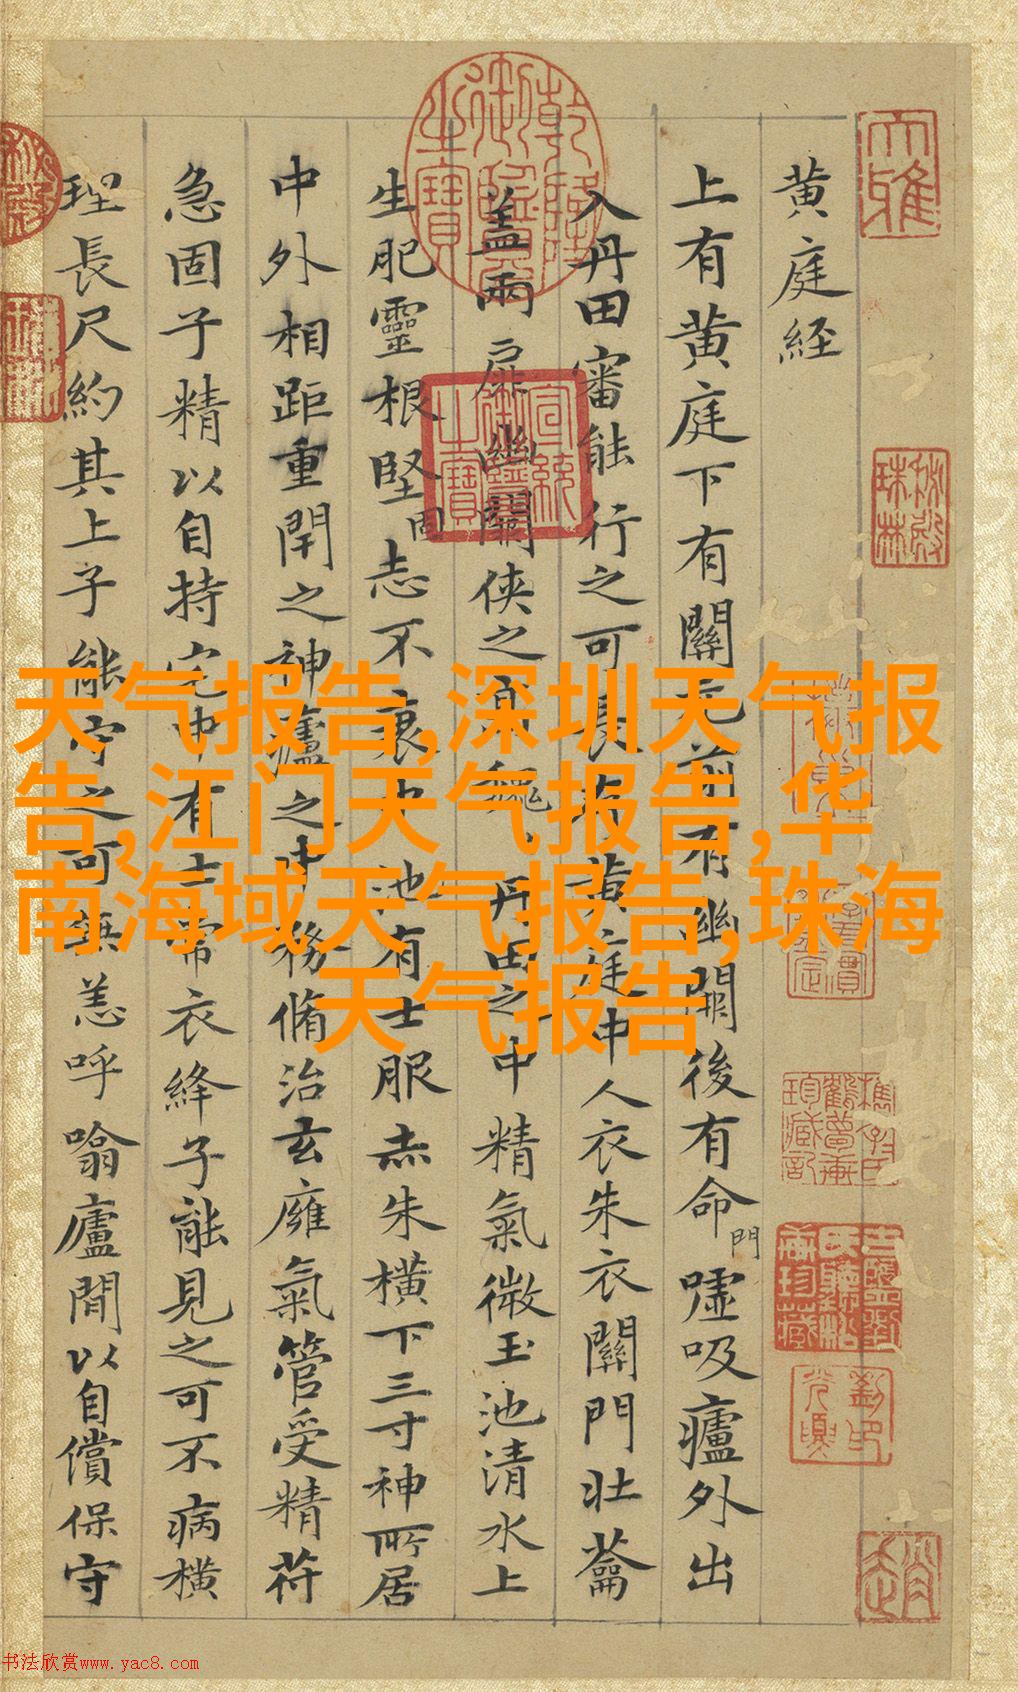 黄庭经
上有黄庭下有關元前有幽闕後有命門嘘吸廬外出
入丹田審能行之可長存黄庭中人衣朱衣關門壯蘥
盖兩扉幽關俠之高巍巍丹田之中精氣微玉池清水上
生肥靈根堅固志不衰中池有士服赤朱橫下三寸神所居
中外相距重閉之神廬之中務脩治玄廱氣管受精苻
急固子精以自持宅中有士常衣絳子能見之可不病橫
理長尺約其上子能守之可無恙呼噏廬閒以自償保守
天气报告,深圳天气报
告,江门天气报告,华
南海域天气报告,珠海
天气报告
大雅
乾隆御覽之寶
宣統御覽之寶
书法欣赏www.yac8.com